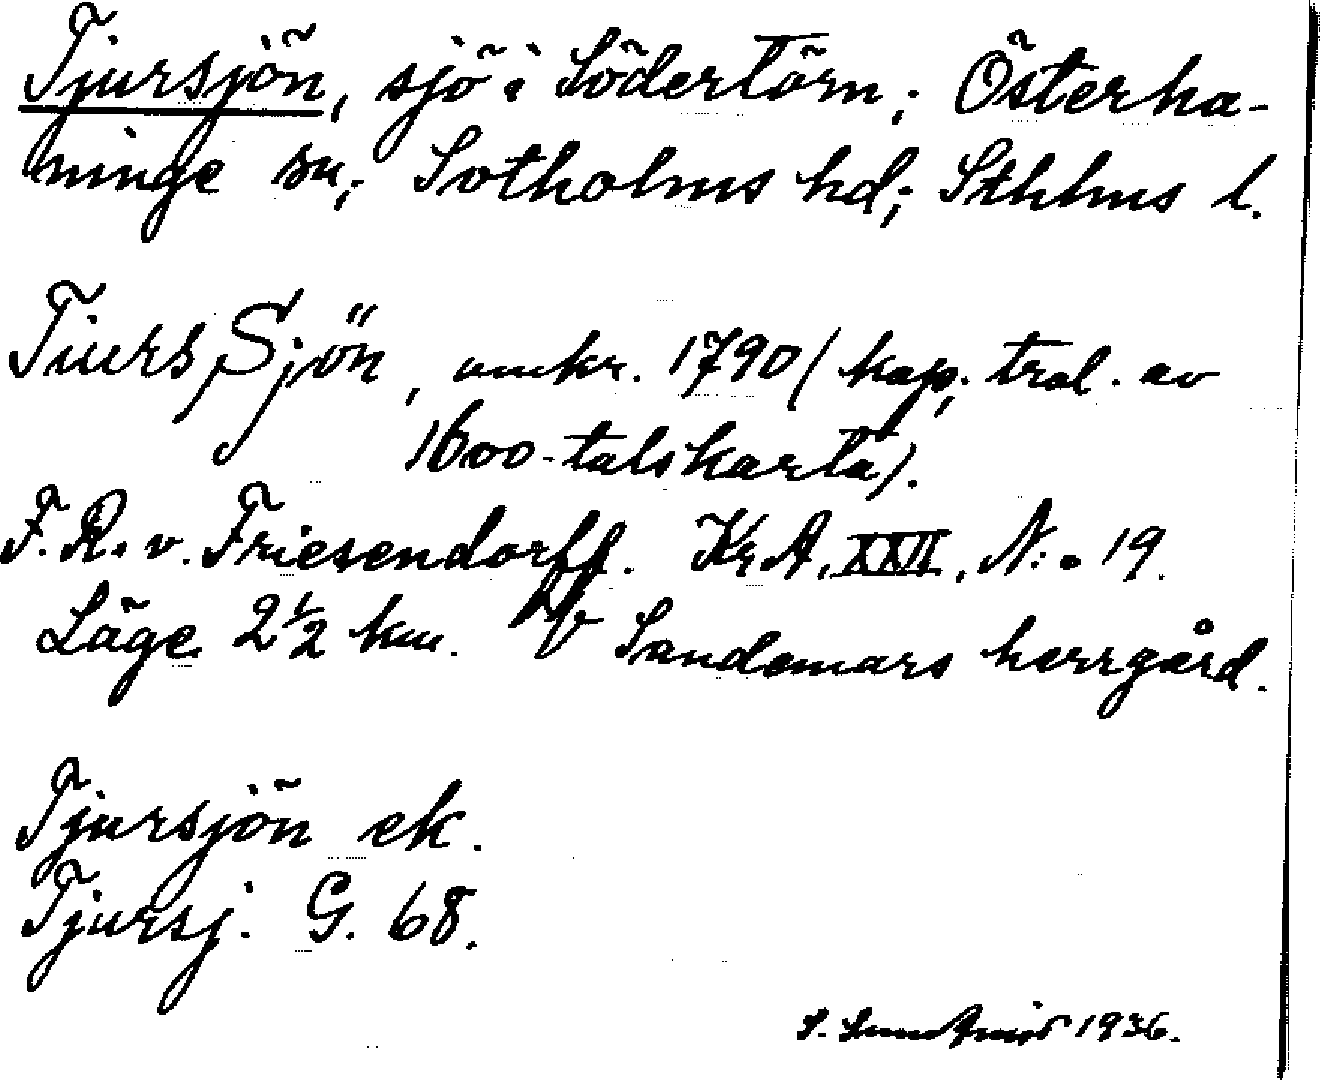 Tjursjön, sjö i Södertörn; Österha-
ninge sn; Sotholms hd; Sthlms l.
Tiurs Sjön, omkr. 1790 (kop. trol. av
1600-talskarta).
F. R. v. Friesendorff. Kr A, XXII, N:o 19.
Läge 2 1/2 km. Sandemars herrgård.
Tjursjön ek.
Tjursj. G. 68.
1936.